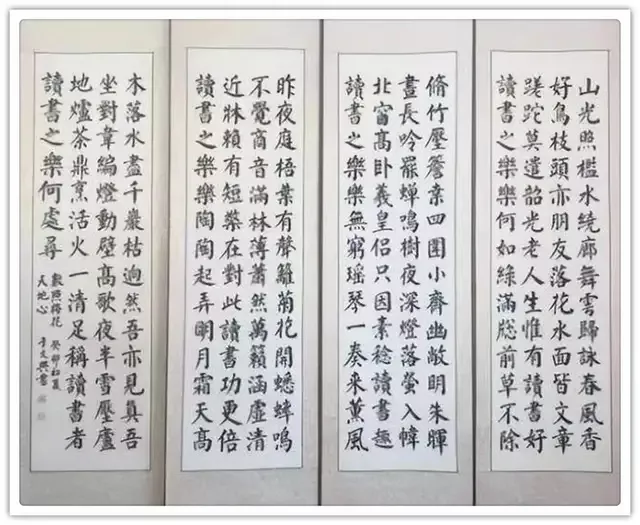 山光照檻水繞廊舞雲歸詠春風香
好鳥枝頭亦朋友落花水面皆文章
蹉跎莫遣韶光老人生惟有讀書好
讀書之樂樂何如綠滿牕前草不除
脩竹壓簷桑四圍小齋幽敞明朱暉
晝長吟罷蟬鳴樹夜深燈落螢入幃
北窗高臥羲皇侶只因素稔讀書趣
讀書之樂樂無窮瑤琴一奏來薰風
昨夜庭梧葉有聲籬菊花開蟋蟀鳴
不覺商音滿林薄蕭然萬籟涵虛清
近牀賴有短檠在對此讀書功更倍
讀書之樂樂陶陶起弄明月霜天高
木落水盡千巖枯迥然吾亦見真吾
坐對韋編燈動壁高歌夜半雪壓廬
地爐茶鼎烹活火一清足稱讀書者
讀書之樂何處尋
數點梅花 癸卯初夏
天地心 文興書